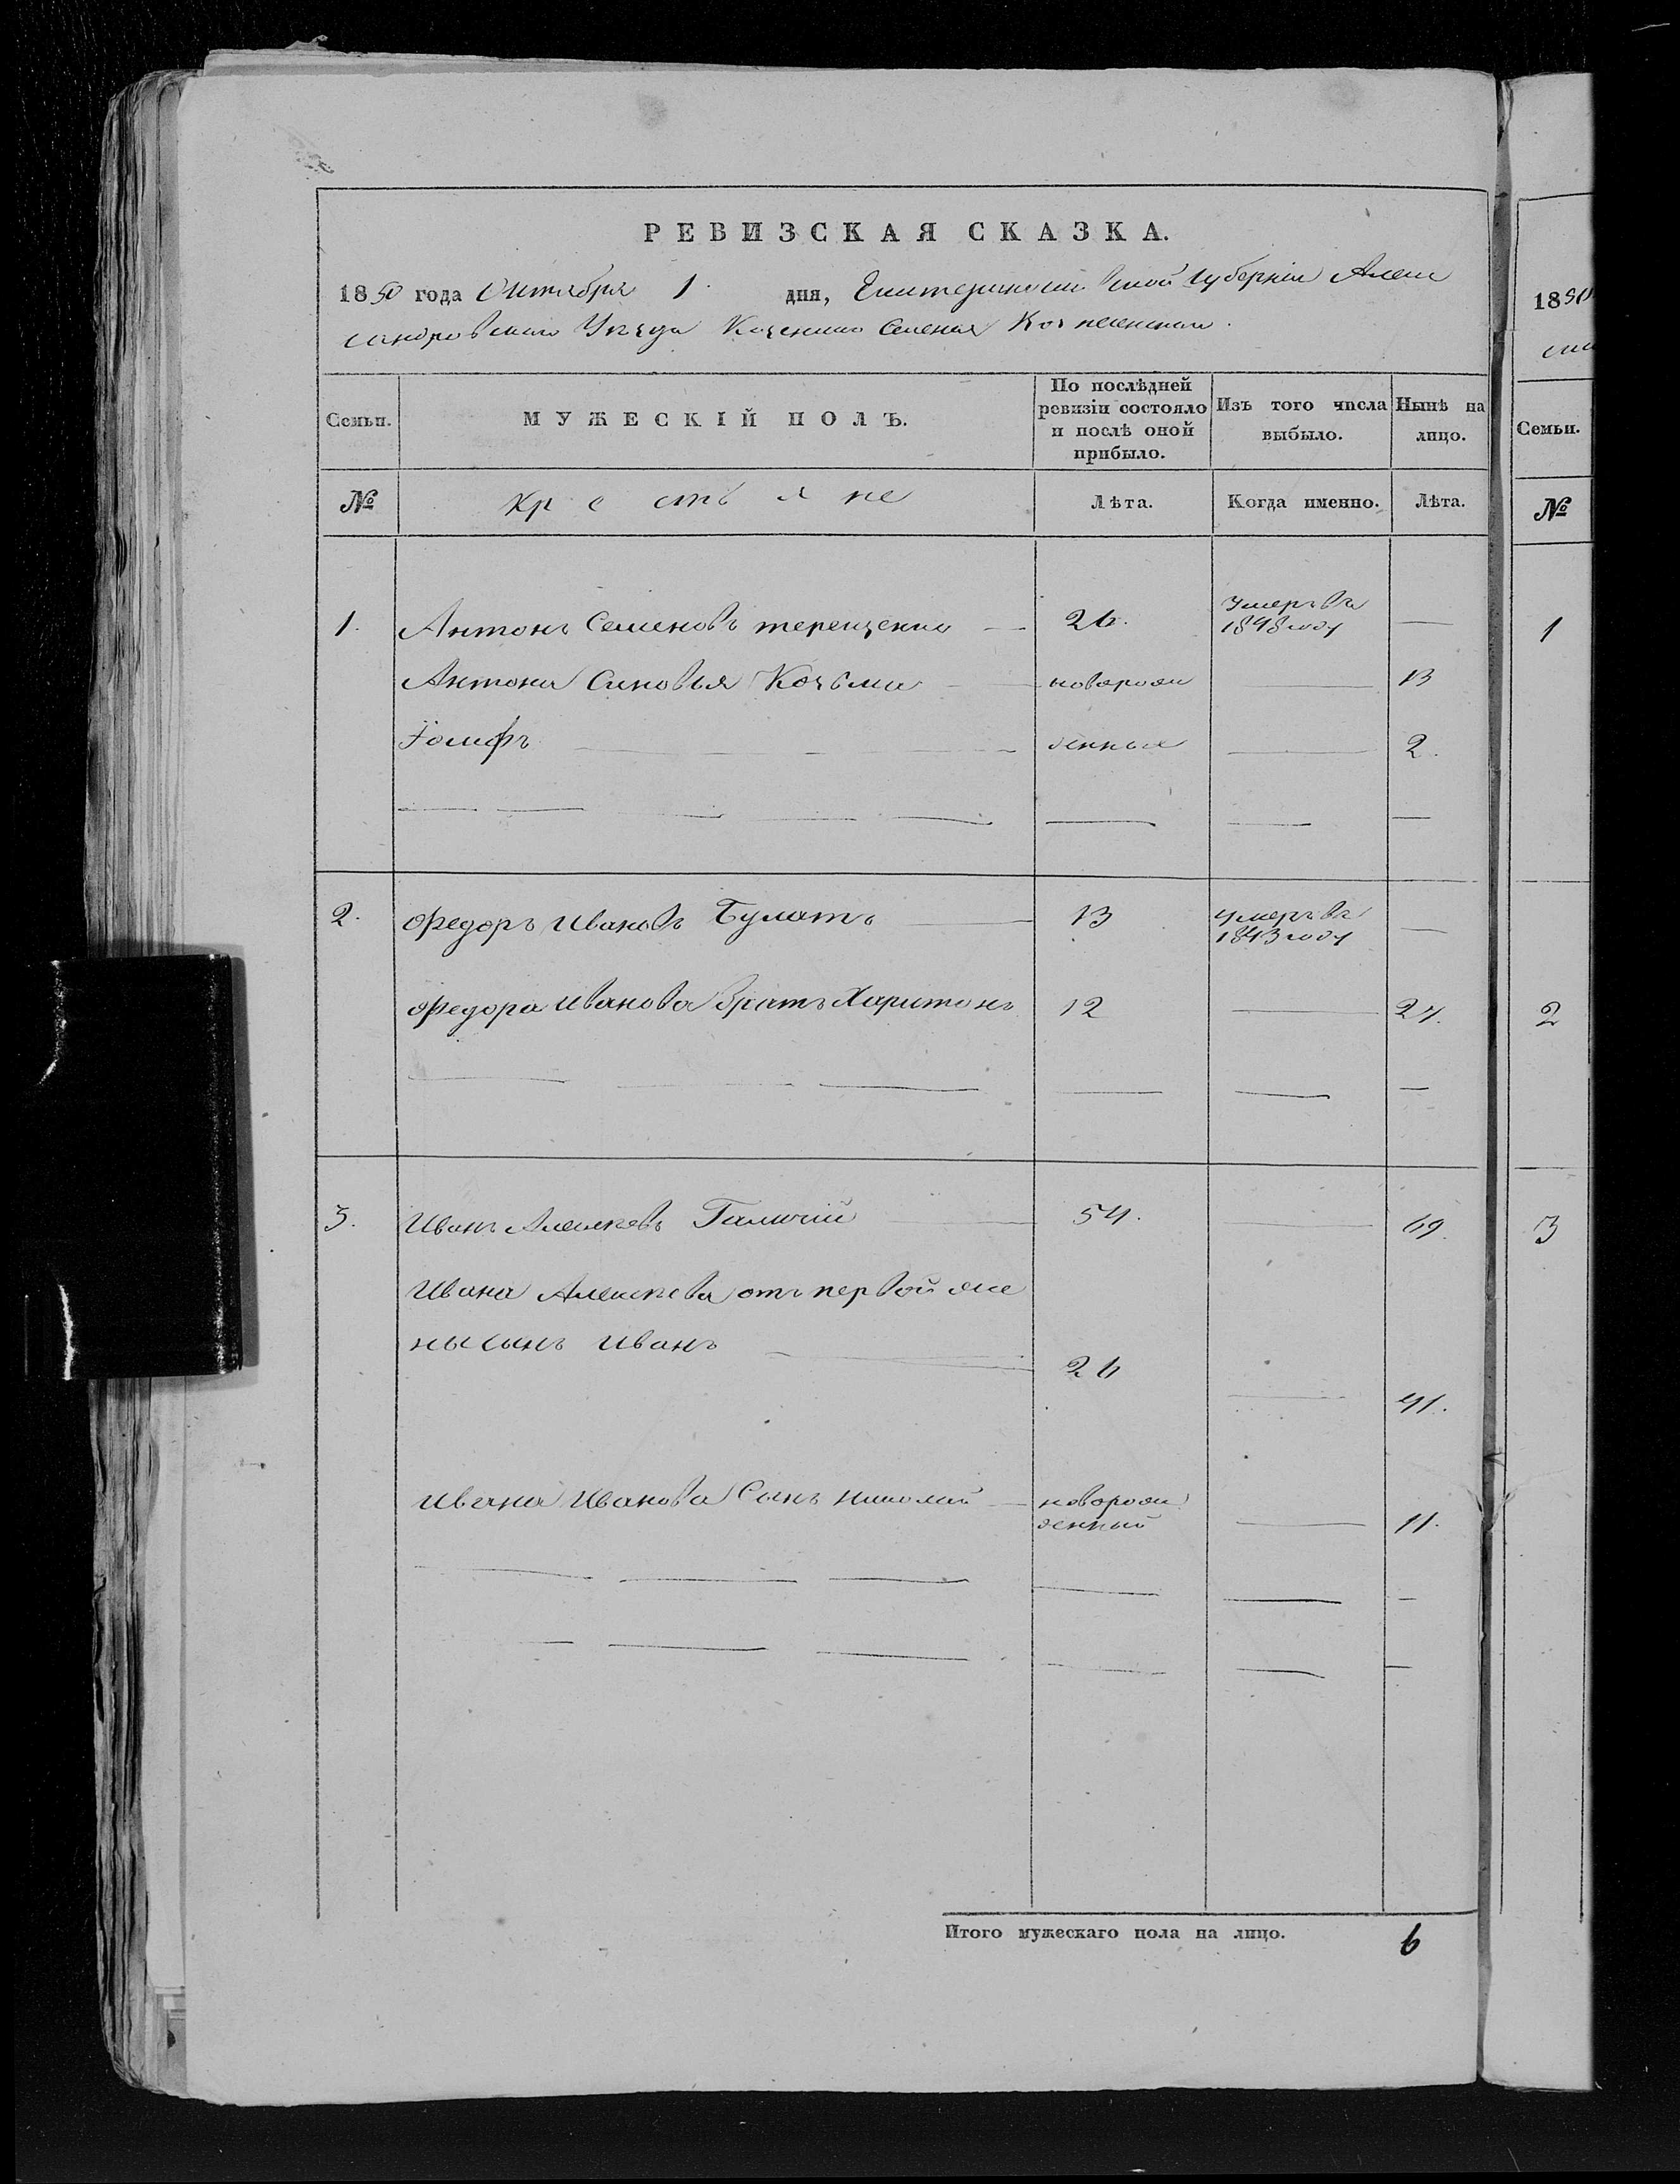 РЕВИЗСКАЯ СКАЗКА.
1850 года Октября 1. дня, Екатериносла вской Губерніи Алек
сандровскаго Уѣзда Казеннаго Селенія
Семьи. МУЖЕСКІЙ ПОЛЪ. По послѣдней ревизіи состояло и послѣ оной прибыло. Изъ того числа выбыло. Нынѣ на лицо.
№ Крестьяне Лѣта. Когда именно. Лѣта.
1. Антонъ Семеновъ терещенко 26. Умеръ въ 1848 году —
Антона Сыновья Козьма новорож — 13
Іосифъ денные — 2.
2. Федоръ Ивановъ Булатъ 13 Умеръ въ 1843 году —
Федора Иванова Братъ Харитонъ 12 — 27.
3. Иванъ Алексѣевъ 54. — 69.
Ивана Алексѣева отъ первой же
ны сынъ Иванъ 26 — 41.
Ивана Иванова Сынъ николай новорож — 11.
денный
Итого мужескаго пола на лицо. 6
1850
Семьи.
№
1
2
3